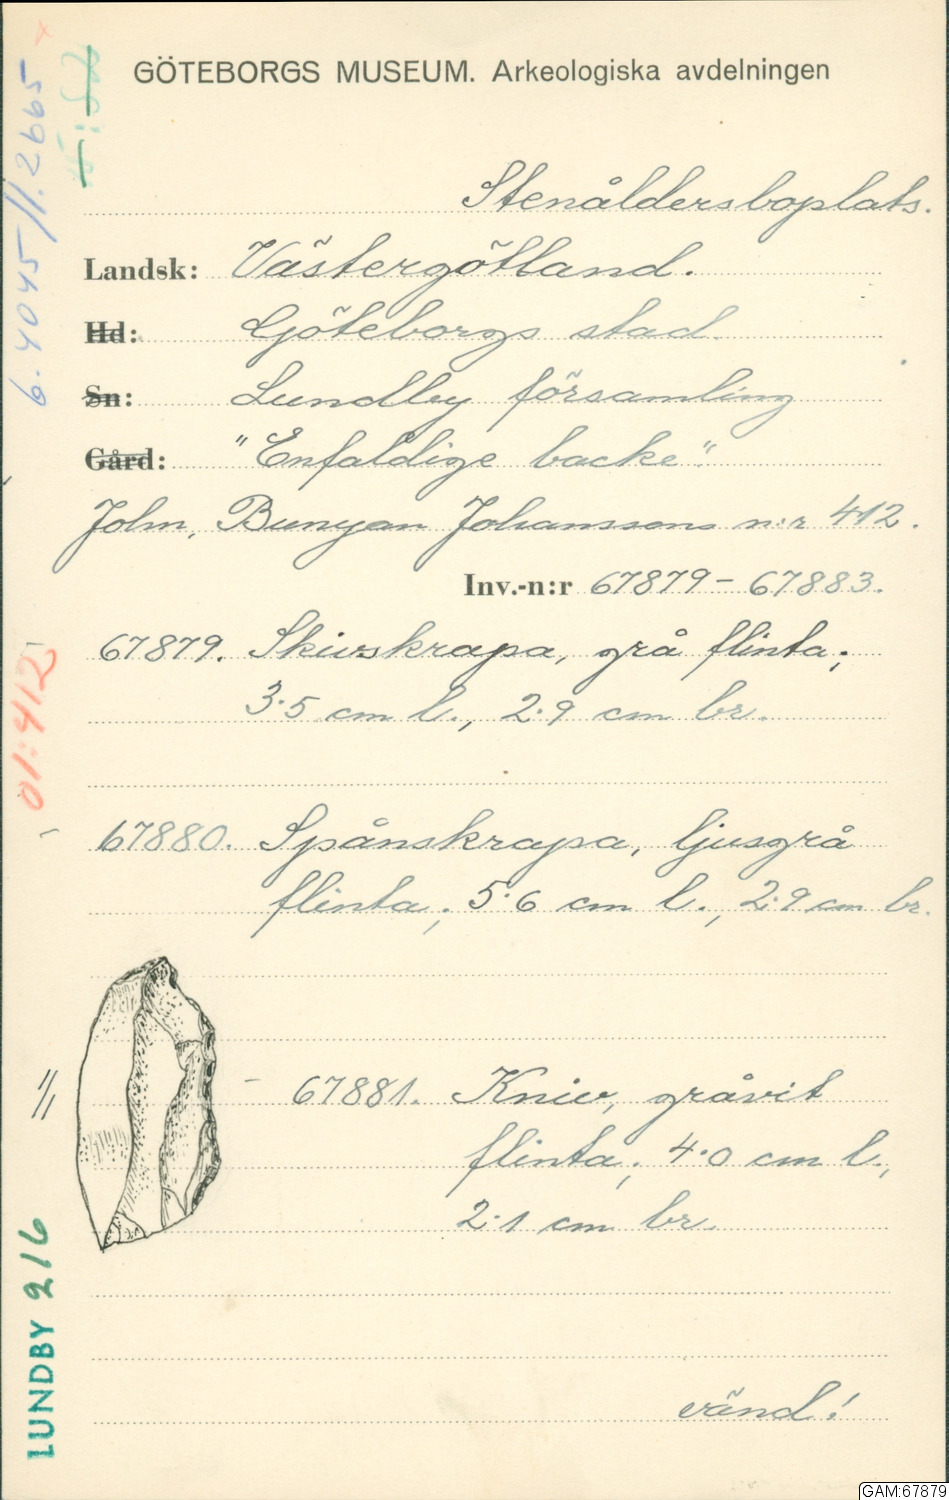 GÖTEBORGS MUSEUM. Arkeologiska avdelningen
Stenåldersboplats.
Landsk: Västergötland.
Hd: Göteborgs stad.
Sn: Lundby församling
Gård: "Enfaldige backe".
John, Bunyan Johanssons n:r 412.
Inv.-n:r 67879 - 67883.
67879. Skivskrapa, grå flinta;
3.5 cm l., 2.9 cm br.
67880. Spånskrapa, ljusgrå
flinta; 5.6 cm l., 2.9 cm br.
1/1
67881. Kniv, gråvit
flinta; 4.0 cm l.,
2.1 cm br.
vänd!
6.4045//.2665 x
01:412
LUNDBY 216
GAM:67879